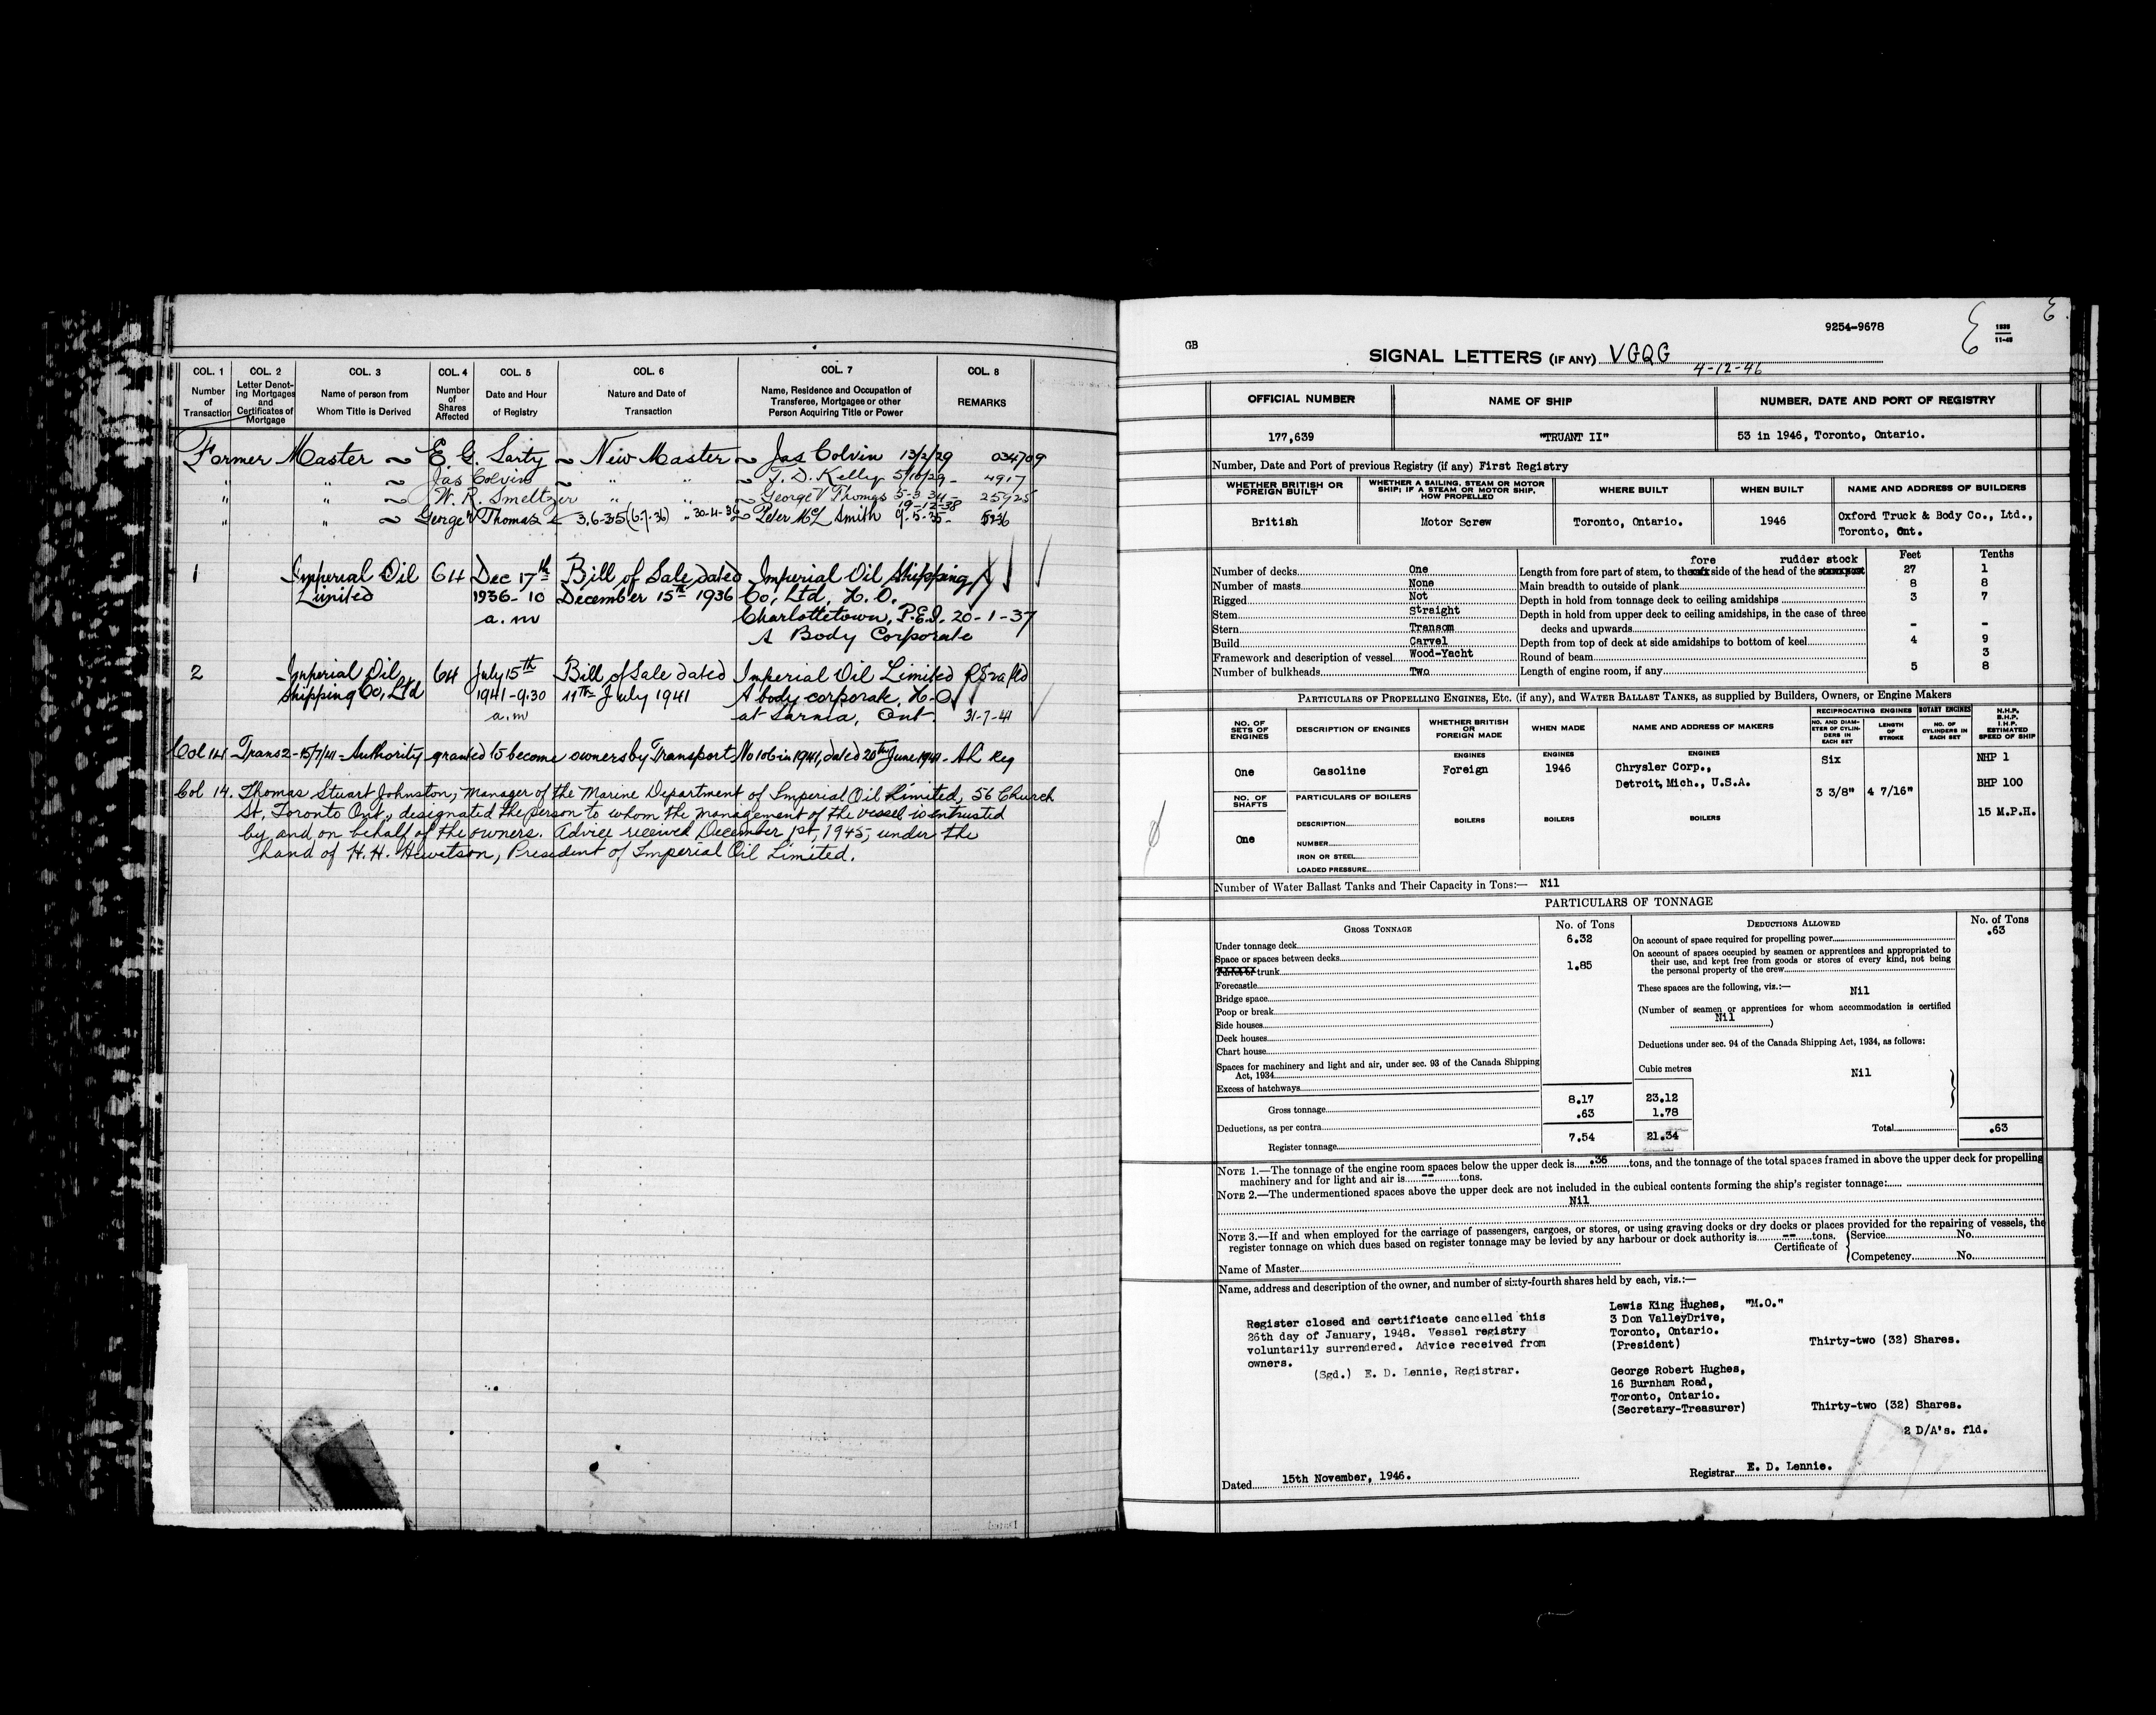 COL. 1 COL. 2 COL. 3 COL. 4 COL. 5 COL. 6 COL. 7 COL. 8
Number of Transaction
Letter Denot-
ing Mortgages
and
Certificates of
Mortgage
Name of person from
Whom Title is Derived
Number
of
Shares
Affected
Date and Hour
of Registry
Nature and Date of
Transaction
Name, Residence and Occupation of
Transferee, Mortgagee or other
Person Acquiring Title or Power
REMARKS
Former Master ~ E. G. Sarty ~ New Master ~ Jas Colvin 13/2/29 034709
" " ~ Jas Colvin ~ " " ~ J. D. Kelly 5/10/29 - 4917
" " ~ W. R. Smeltzer " " ~ George V Thomas 5-3-34 - 25925
19-12-38
" " ~ George V Thomas 3.6-35 (6.7.36) " 30-4-36 ~ Peter McL Smith 9.5.35-
1 Imperial Oil 64 Dec 17th Bill of Sale dated Imperial Oil Shipping
Limited 1936-10 December 15th 1936 Co, Ltd, H.O.
a.m Charlottetown, P.E.I. 20-1-37
A Body Corporate
2 Imperial Oil 64 July 15th Bill of Sale dated Imperial Oil Limited
Shipping Co, Ltd 1941-9.30 11th July 1941 A body corporate, H-O
a.m at Sarnia, Ont. 31-7-41
Col 14 Trans 2-15/7/41-Authority granted to become owners by Transport No 106 in 1941, dated 26th June 1941. AL Reg
Col 14. Thomas Stuart Johnston, Manager of the Marine Department of Imperial Oil Limited, 56 Church
St, Toronto Ont., designated the person to whom the management of the vessel is entrusted
by and on behalf of the owners. Advice received December 1st, 1945, under the
hand of H. H. Hewetson, President of Imperial Oil Limited.
9254-9678
GB
SIGNAL LETTERS (IF ANY) VGQG
4-12-46
OFFICIAL NUMBER NAME OF SHIP NUMBER, DATE AND PORT OF REGISTRY
177,639 "TRUANT II" 53 in 1946, Toronto, Ontario.
Number, Date and Port of previous Registry (if any) First Registry
WHETHER BRITISH OR
FOREIGN BUILT
WHETHER A SAILING, STEAM OR MOTOR
SHIP; IF A STEAM OR MOTOR SHIP,
HOW PROPELLED
WHERE BUILT WHEN BUILT NAME AND ADDRESS OF BUILDERS
British Motor Screw Toronto, Ontario. 1946 Oxford Truck & Body Co., Ltd.,
Toronto, Ont.
fore rudder stock Feet Tenths
Number of decks One Length from fore part of stem, to the side of the head of the 27 1
Number of masts None Main breadth to outside of plank 8 8
Rigged Not Depth in hold from tonnage deck to ceiling amidships 3 7
Stem Straight Depth in hold from upper deck to ceiling amidships, in the case of three
Stern Transom decks and upwards - -
Build Carvel Depth from top of deck at side amidships to bottom of keel 4 9
Framework and description of vessel Wood-Yacht Round of beam 3
Number of bulkheads Two Length of engine room, if any 5 8
PARTICULARS OF PROPELLING ENGINES, ETC. (if any), and WATER BALLAST TANKS, as supplied by Builders, Owners, or Engine Makers
NO. OF
SETS OF
ENGINES
DESCRIPTION OF ENGINES
WHETHER BRITISH
OR
FOREIGN MADE
WHEN MADE
NAME AND ADDRESS OF MAKERS
RECIPROCATING ENGINES ROTARY ENGINES
NO. AND DIAM-
ETER OF CYLIN-
DERS IN
EACH SET
LENGTH
OF
STROKE
NO. OF
CYLINDERS IN
EACH SET
N.H.P.
B.H.P.
I.H.P.
ESTIMATED
SPEED OF SHIP
ENGINES ENGINES ENGINES
One Gasoline Foreign 1946 Chrysler Corp., Six NHP 1
Detroit, Mich., U.S.A. 3 3/8" 4 7/16" BHP 100
NO. OF
SHAFTS
PARTICULARS OF BOILERS
15 M.P.H.
DESCRIPTION BOILERS BOILERS BOILERS
One NUMBER
IRON OR STEEL
LOADED PRESSURE
Number of Water Ballast Tanks and Their Capacity in Tons:— Nil
PARTICULARS OF TONNAGE
GROSS TONNAGE No. of Tons DEDUCTIONS ALLOWED No. of Tons
Under tonnage deck 6.32 On account of space required for propelling power .63
Space or spaces between decks
Turret or trunk 1.85
Forecastle
Bridge space
Poop or break
Side houses
Deck houses
Chart house
Spaces for machinery and light and air, under sec. 93 of the Canada Shipping
Act, 1934
Excess of hatchways
On account of spaces occupied by seamen or apprentices and appropriated to
their use, and kept free from goods or stores of every kind, not being
the personal property of the crew
These spaces are the following, viz.:— Nil
(Number of seamen or apprentices for whom accommodation is certified
Nil )
Deductions under sec. 94 of the Canada Shipping Act, 1934, as follows:
Cubic metres Nil
Gross tonnage 8.17 23.12
Deductions, as per contra .63 1.78
Register tonnage 7.54 21.34 Total .63
NOTE 1.—The tonnage of the engine room spaces below the upper deck is .36 tons, and the tonnage of the total spaces framed in above the upper deck for propelling
machinery and for light and air is -- tons.
NOTE 2.—The undermentioned spaces above the upper deck are not included in the cubical contents forming the ship's register tonnage:
Nil
NOTE 3.—If and when employed for the carriage of passengers, cargoes, or stores, or using graving docks or dry docks or places provided for the repairing of vessels, the
register tonnage on which dues based on register tonnage may be levied by any harbour or dock authority is -- tons.
Certificate of Service No.
Competency No.
Name of Master
Name, address and description of the owner, and number of sixty-fourth shares held by each, viz.:—
Register closed and certificate cancelled this
26th day of January, 1948. Vessel registry
voluntarily surrendered. Advice received from
owners.
(Sgd.) E. D. Lennie, Registrar.
Lewis King Hughes, "M.O."
3 Don ValleyDrive,
Toronto, Ontario.
(President) Thirty-two (32) Shares.
George Robert Hughes,
16 Burnham Road,
Toronto, Ontario.
(Secretary-Treasurer) Thirty-two (32) Shares.
2 D/A's. fld.
Dated 15th November, 1946. Registrar E. D. Lennie.